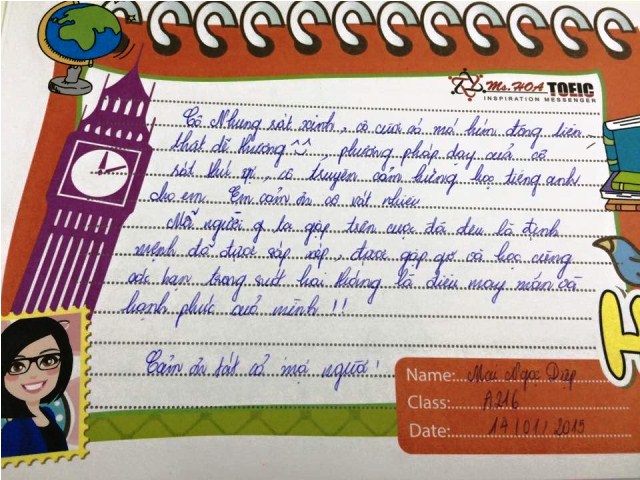 Ms. HOA TOEIC
INSPIRATION MESSENGER
Cô Nhung rất xinh, cô cười có má lúm đồng tiền
thật dễ thương ^^, phương pháp dạy của cô
rất thú vị, cô truyền cảm hứng học tiếng anh
cho em. Em cảm ơn cô rất nhiều
Mỗi người ta gặp trên cuộc đời đều là định
mệnh đã được sắp xếp, được gặp gỡ và học cùng
các bạn trong suốt hai tháng là điều may mắn và
hạnh phúc của mình !!
Cảm ơn tất cả mọi người!
Name: Mai Ngọc Diệp
Class: A216
Date: 14/01/2015